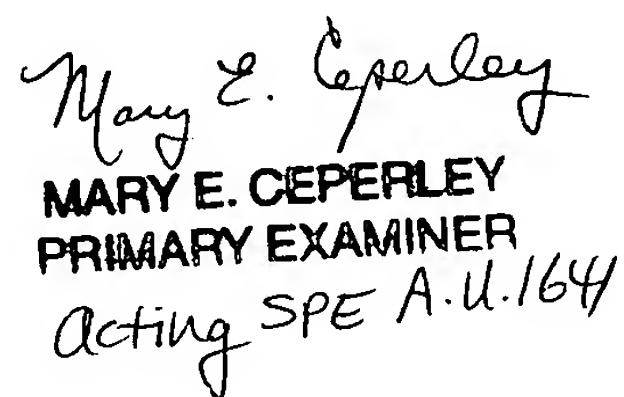 Mary E. Ceperley
MARY E. CEPERLEY
PRIMARY EXAMINER
acting SPE A.U.1641